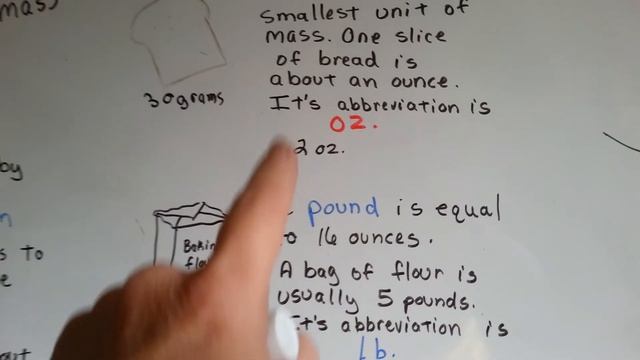 mass
Smallest unit of
mass. One slice
of bread is
about an ounce.
It's abbreviation is
oz.
30 grams
2 oz.
by
pound is equal
16 ounces.
A bag of flour is
usually 5 pounds.
It's abbreviation is
lb.
s to